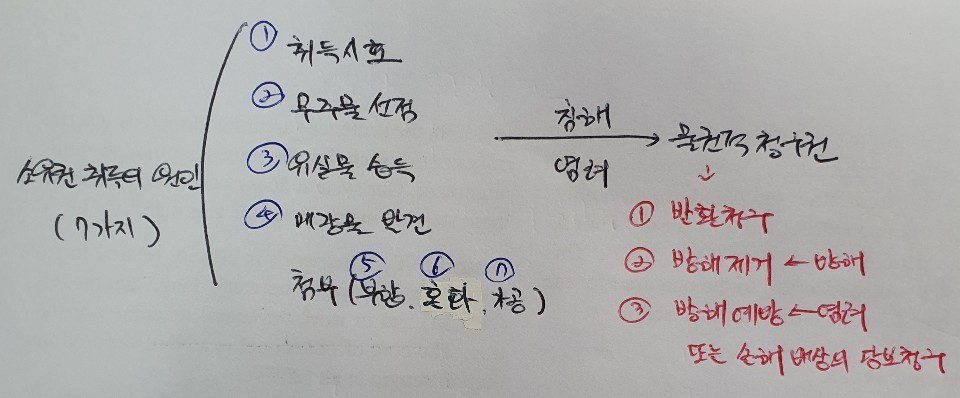 소유권 취득의 원인
(7가지)
① 취득시효
② 무주물 선점
③ 유실물 습득
④ 매장물 발견
첨부 (⑤부합, ⑥혼화, ⑦가공)
침해
염려
물권적 청구권
① 반환청구
② 방해제거 ← 방해
③ 방해예방 ← 염려
또는 손해배상의 담보청구